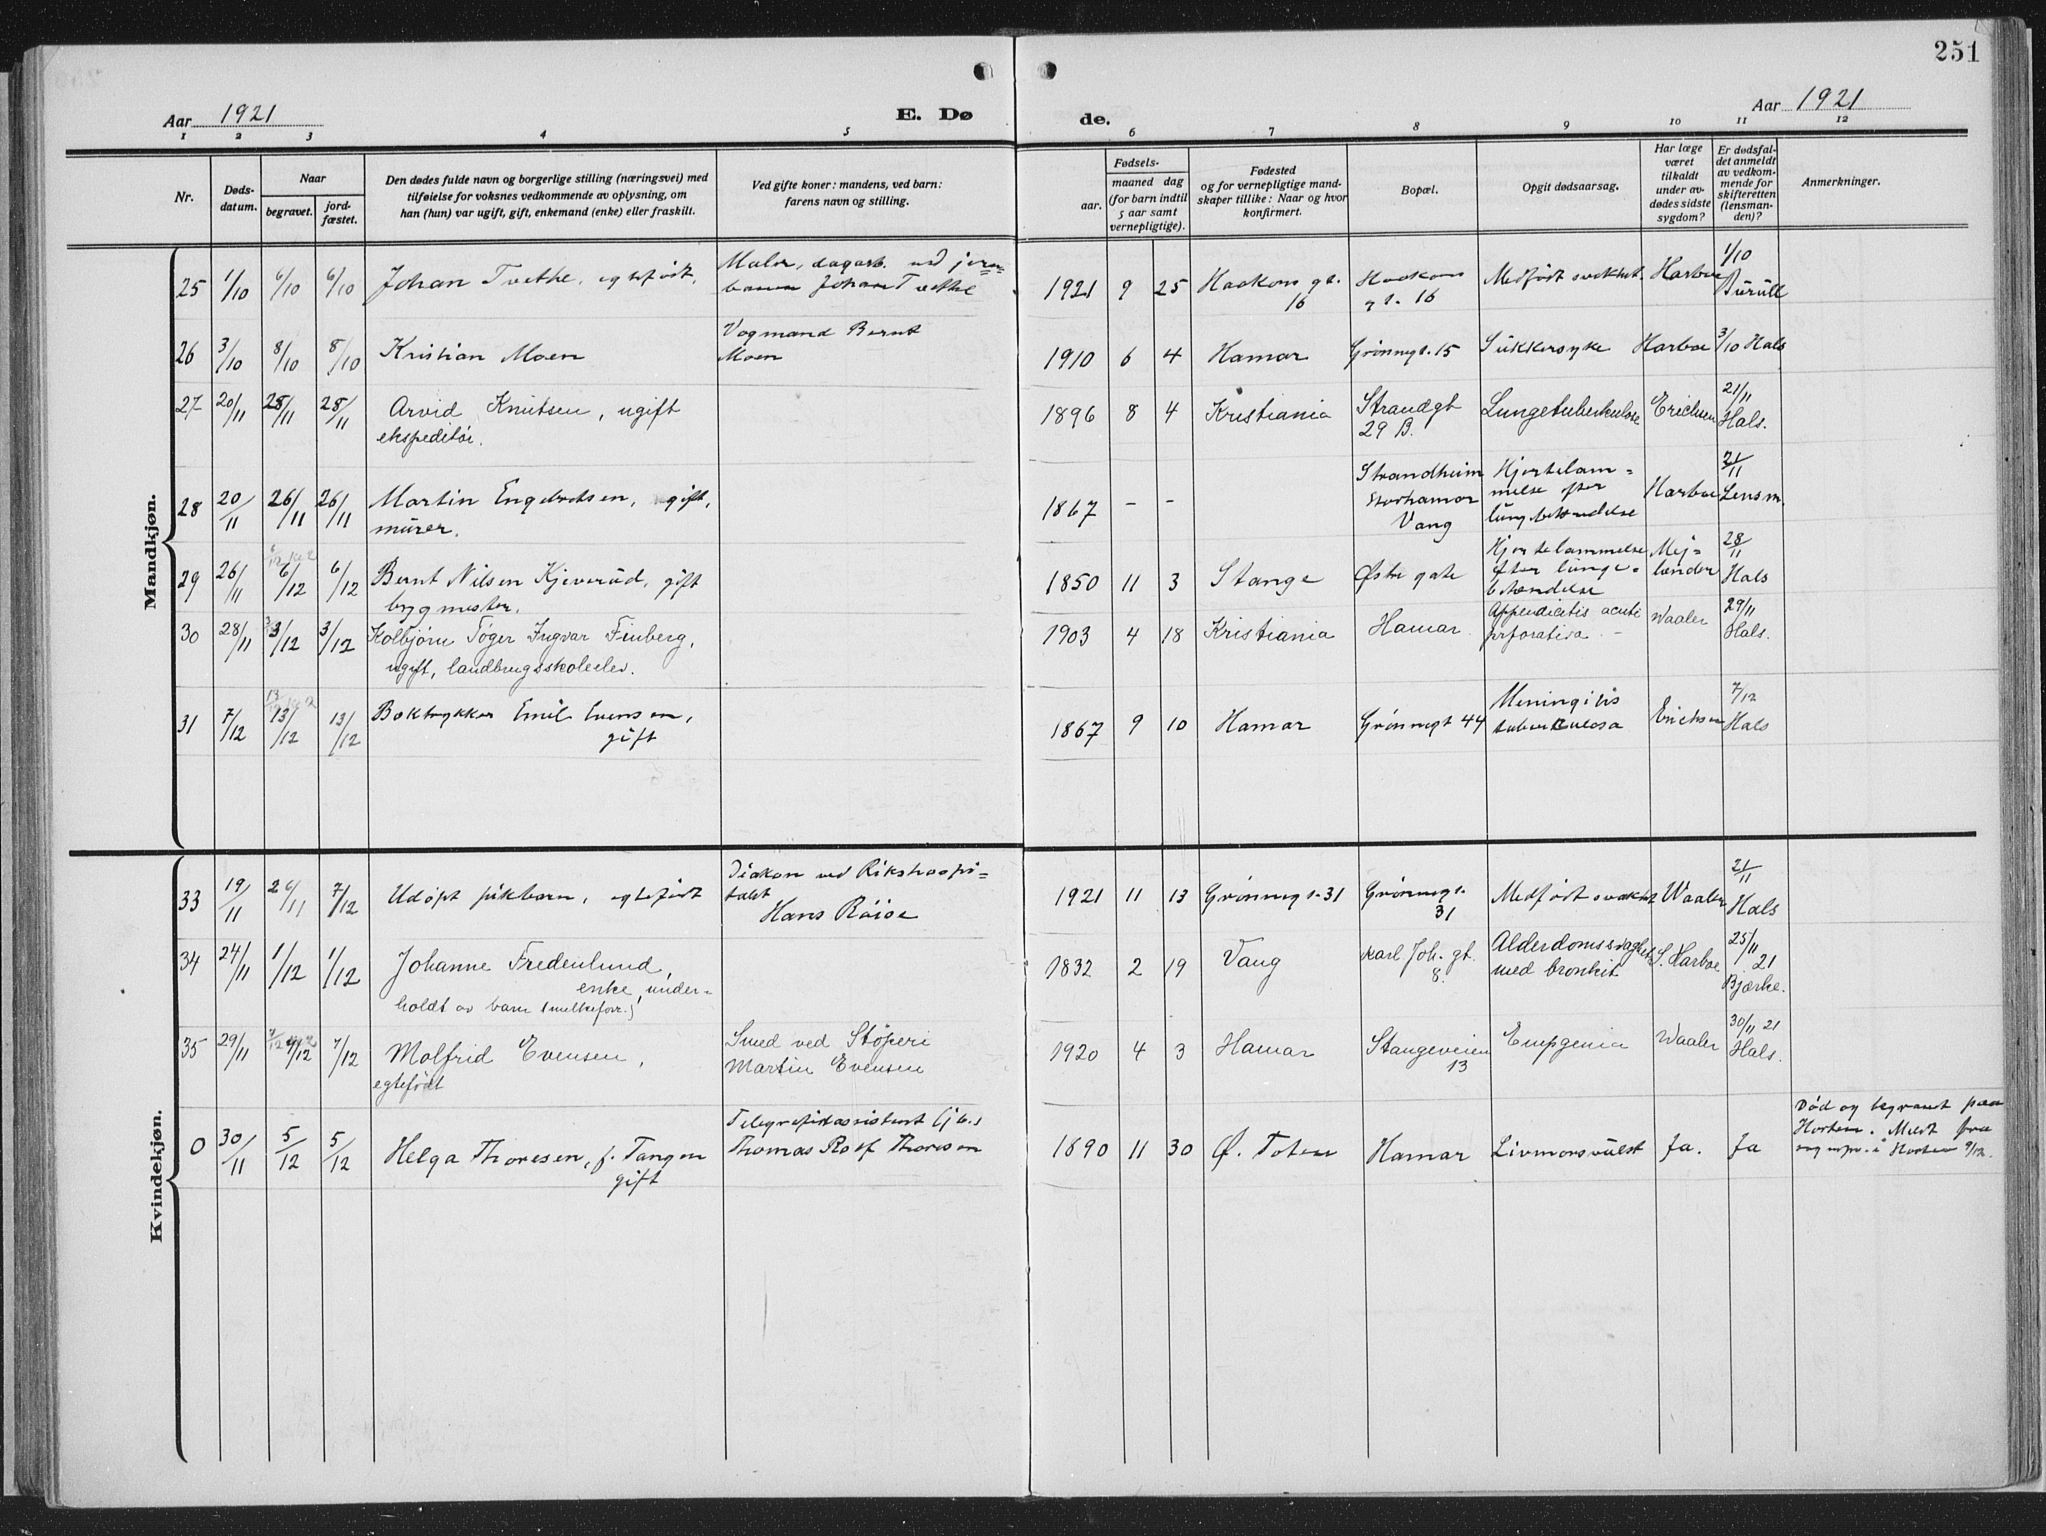 251
Aar 1921
E. Dø
de.
Aar 1921
1 2 3 4 5 6 7 8 9 10 11 12
Nr.
Døds-
datum.
Naar
begravet.
jord-
fæstet.
Den dødes fulde navn og borgerlige stilling (næringsvei) med
tilføielse for voksnes vedkommende av oplysning, om
han (hun) var ugift, gift, enkemand (enke) eller fraskilt.
Ved gifte koner: mandens, ved barn:
farens navn og stilling.
Fødsels-
aar.
maaned dag
(for barn indtil
5 aar samt
vernepligtige).
Fødested
og for vernepligtige mand-
skaper tillike: Naar og hvor
konfirmert.
Bopæl.
Opgit dødsaarsag.
Har læge
været
tilkaldt
under av-
dødes sidste
sygdom?
Er dødsfal-
det anmeldt
av vedkom-
mende for
skifteretten
(lensman-
den)?
Anmerkninger.
Mandkjøn.
25 1/10 6/10 6/10 Johan Tvethe, egtefødt,
Maler, dagarb. ved jern-
banen Johan Tvethe
1921 9 25 Haakons gt.
16
Haakons
gt. 16
Medfødt svakhet. Harboe
1/10
Burull
26 3/10 8/10 8/10 Kristian Moen
Vogmand Bernt
Moen
1910 6 4 Hamar Grønnegt. 15 Sukkersyke Harboe 3/10 Hals
27 20/11 25/11 25/11 Arvid Knutsen, ugift
ekspeditør.
1896 8 4 Kristiania Strandgt
29 B.
Lungetuberkulose Erichsen
21/11
Hals.
28 20/11 26/11 26/11 Martin Engebretsen, gift,
murer.
1867 - -
Strandheim
Storhamar
Vang
Hjertelam=
melse efter
lungebetændelse
Harboe
21/11
Lensm.
29 26/11 6/12 6/12 Bernt Nilsen Kjeverud, gift
bygmester.
1850 11 3 Stange Østre gate
Hjertelammelse
efter lunge-
betændelse
Mej-
lænder
28/11
Hals
30 28/11 3/12 3/12 Kolbjørn Tøger Ingvar Finberg,
ugift, landbrugsskoleelev.
1903 4 18 Kristiania Hamar.
Appendicitis acuta
prforativa.
Waaler
29/11
Hals.
31 7/12 13/12 13/12 Boktrykker Emil Evensen,
gift
1867 9 10 Hamar Grønnegt 44
Meningitis
tuberculosa
Erichsen
7/12
Hals
Kvindekjøn.
33 19/11 26/11 7/12 Udøpt pikebarn, egtefødt
Diakon ved Rikshospi=
talet
Hans Røise
1921 11 13 Grønnegt. 31 Grønnegt.
31
Medfødt svakhet Waaler
21/11
Hals
34 24/11 1/12 1/12 Johanne Fredenlund,
enke, under-
holdt av barn (melkeforr.)
1832 2 19 Vang Karl Joh. gt.
8.
Alderdomssvaghet
med bronkit.
S. Harboe
25/11
21
Bjærke.
35 29/11 7/12 7/12 Molfrid Evensen,
egtefødt
Smed ved Støperi
Martin Evensen
1920 4 3 Hamar Stangeveien
13
Waaler
30/11 21
Hals.
0 30/11 5/12 5/12 Helga Thoresen, f. Tangen
gift
Telegrafistassistent (jb.)
Thomas Rolf Thoresen
1890 11 30 Ø. Toten Hamar Livmorsvulst Ja. Ja
Død og begravet paa
Horten. Meldt fra
sognepr. i Horten 9/12.